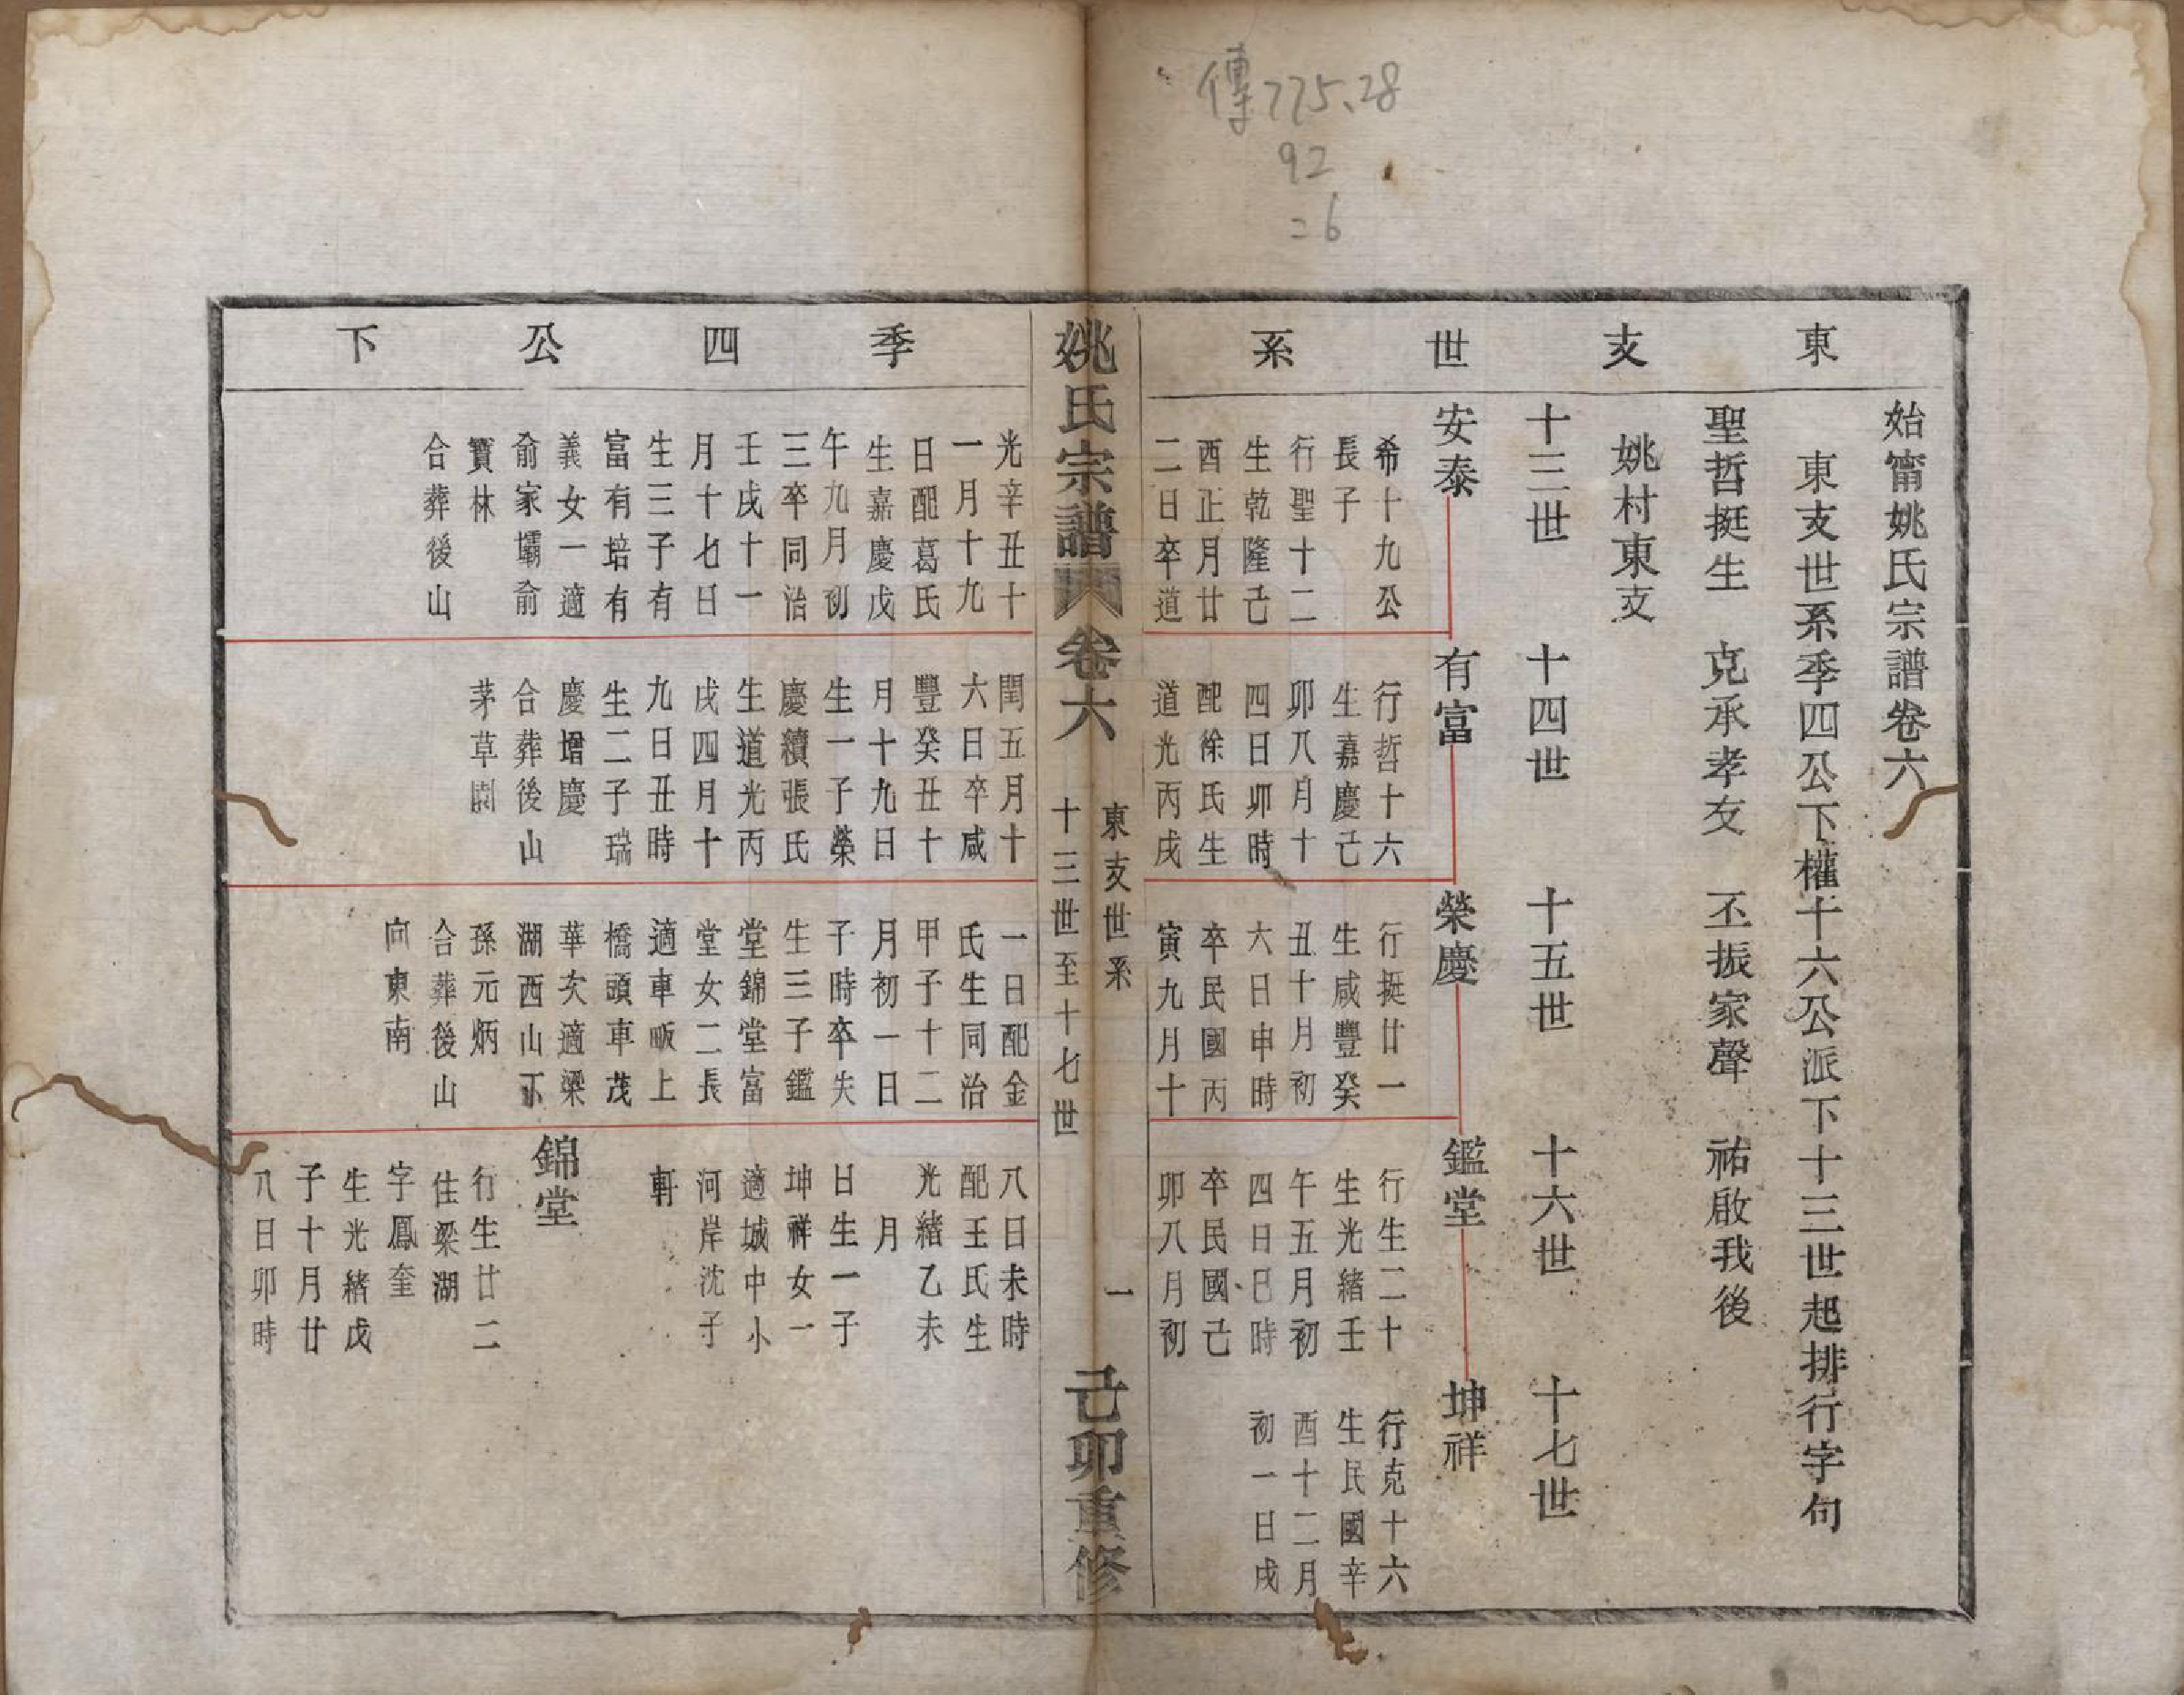 傳775.28
92
=6
東支世系
始甯姚氏宗譜卷六
東支世系季四公下權十六公派下十三世起排行字句
聖哲挺生 克承孝友 丕振家聲 祐啟我後
姚村東支
十三世 十四世 十五世 十六世 十七世
安泰
希十九公
長子
行聖十二
生乾隆己
酉正月廿
二日卒道
有富
行哲十六
生嘉慶己
卯八月十
四日卯時
配徐氏生
道光丙戌
榮慶
行挺廿一
生咸豐癸
丑十月初
六日申時
卒民國丙
寅九月十
鑑堂
行生二十
生光緒壬
午五月初
四日巳時
卒民國己
卯八月初
坤祥
行克十六
生民國辛
酉十二月
初一日戌
姚氏宗譜 卷六
東支世系
十三世至十七世
一
己卯重修
季四公下
光辛丑十
一月十九
日配葛氏
生嘉慶戊
午九月初
三卒同治
壬戌十一
月十七日
生三子有
富有培有
義女一適
俞家壩俞
寶林
合葬後山
閏五月十
六日卒咸
豐癸丑十
月十九日
生一子榮
慶續張氏
生道光丙
戌四月十
九日丑時
生二子瑞
慶增慶
合葬後山
茅草園
一日配金
氏生同治
甲子十二
月初一日
子時卒失
生三子鑑
堂錦堂富
堂女二長
適車畈上
橋頭車茂
華次適梁
湖西山下
孫元炳
合葬後山
向東南
八日未時
配王氏生
光緒乙未
月
日生一子
坤祥女一
適城中小
河岸沈子
軒
錦堂
行生廿二
住梁湖
字鳳奎
生光緒戊
子十月廿
八日卯時